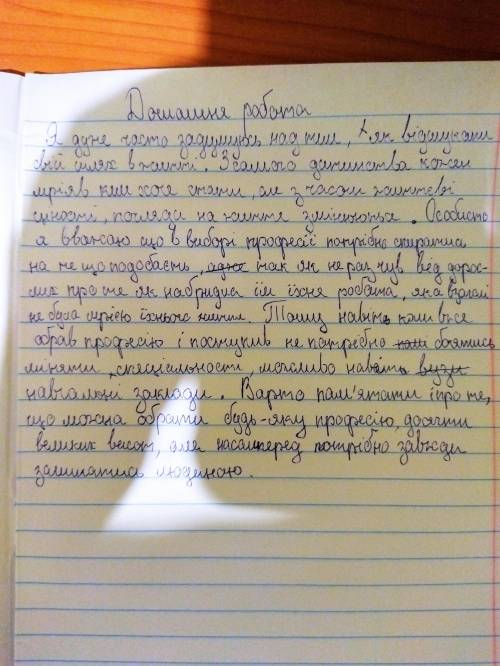 Домашня робота
Я дуже часто задумуюсь над тим, як відшукати
свій шлях в житті. З самого дитинства кожен
мріяв ким хоче стати, але з часом життєві
цінності, погляди на життя змінюються. Особисто
я вважаю що в виборі професії потрібно спиратись
на те що подобаєть, адже так як не раз чув від дорос-
лих про те як набридла їм їхня робота, яка взагалі
не була мрією їхнього життя. Тому навіть коли вже
обрав професію і поступив не потрібно боятись
миняти спеціальності, можливо навіть вузи
навчальні заклади. Варто пам'ятати і про те,
що можна обрати будь-яку професію, досягти
великих висот, але насамперед потрібно завжди
залишатись людиною.